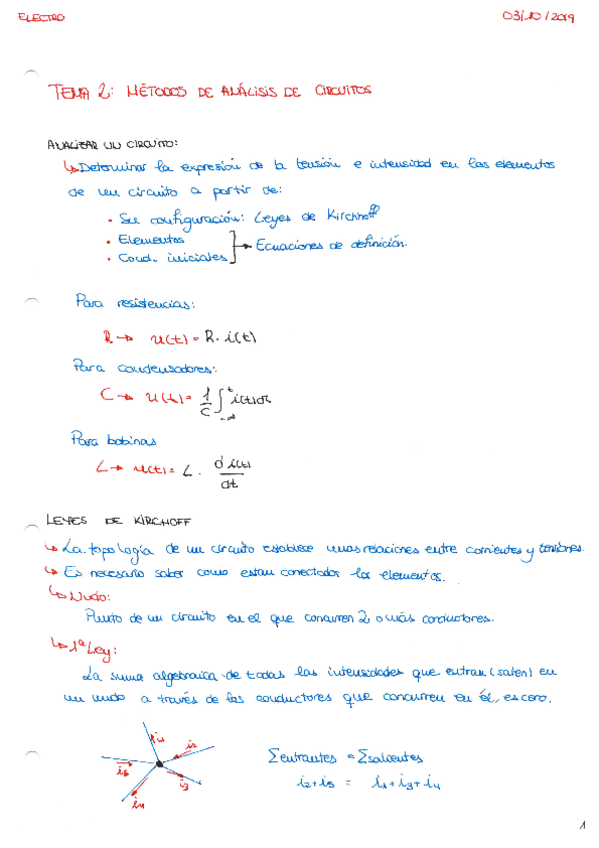 ELECTRO
03/10/2019
TEMA 2: MÉTODOS DE ANÁLISIS DE CIRCUITOS
ANALIZAR UN CIRCUITO:
↳ Determinar la expresión de la tensión e intensidad en los elementos
de un circuito a partir de:
• Su configuración: Leyes de Kirchhoff
• Elementos
• Cond. iniciales
→ Ecuaciones de definición.
Para resistencias:
R → u(t) = R · i(t)
Para condensadores:
C → u(t) = 1/C ∫ i(t)dt
Para bobinas
L → u(t) = L · d i(t)/dt
LEYES DE KIRCHOFF
↳ La topología de un circuito establece unas relaciones entre corrientes y tensiones.
↳ Es necesario saber como estan conectados los elementos.
↳ Nudo:
Punto de un circuito en el que concurren 2 o más conductores.
↳ 1ª Ley:
La suma algebraica de todas las intensidades que entran (salen) en
un nudo a través de los conductores que concurren en él, es cero.
i2
i3
i4
Σentrantes = Σsalientes
i2 + i5 = i1 + i3 + i4
1